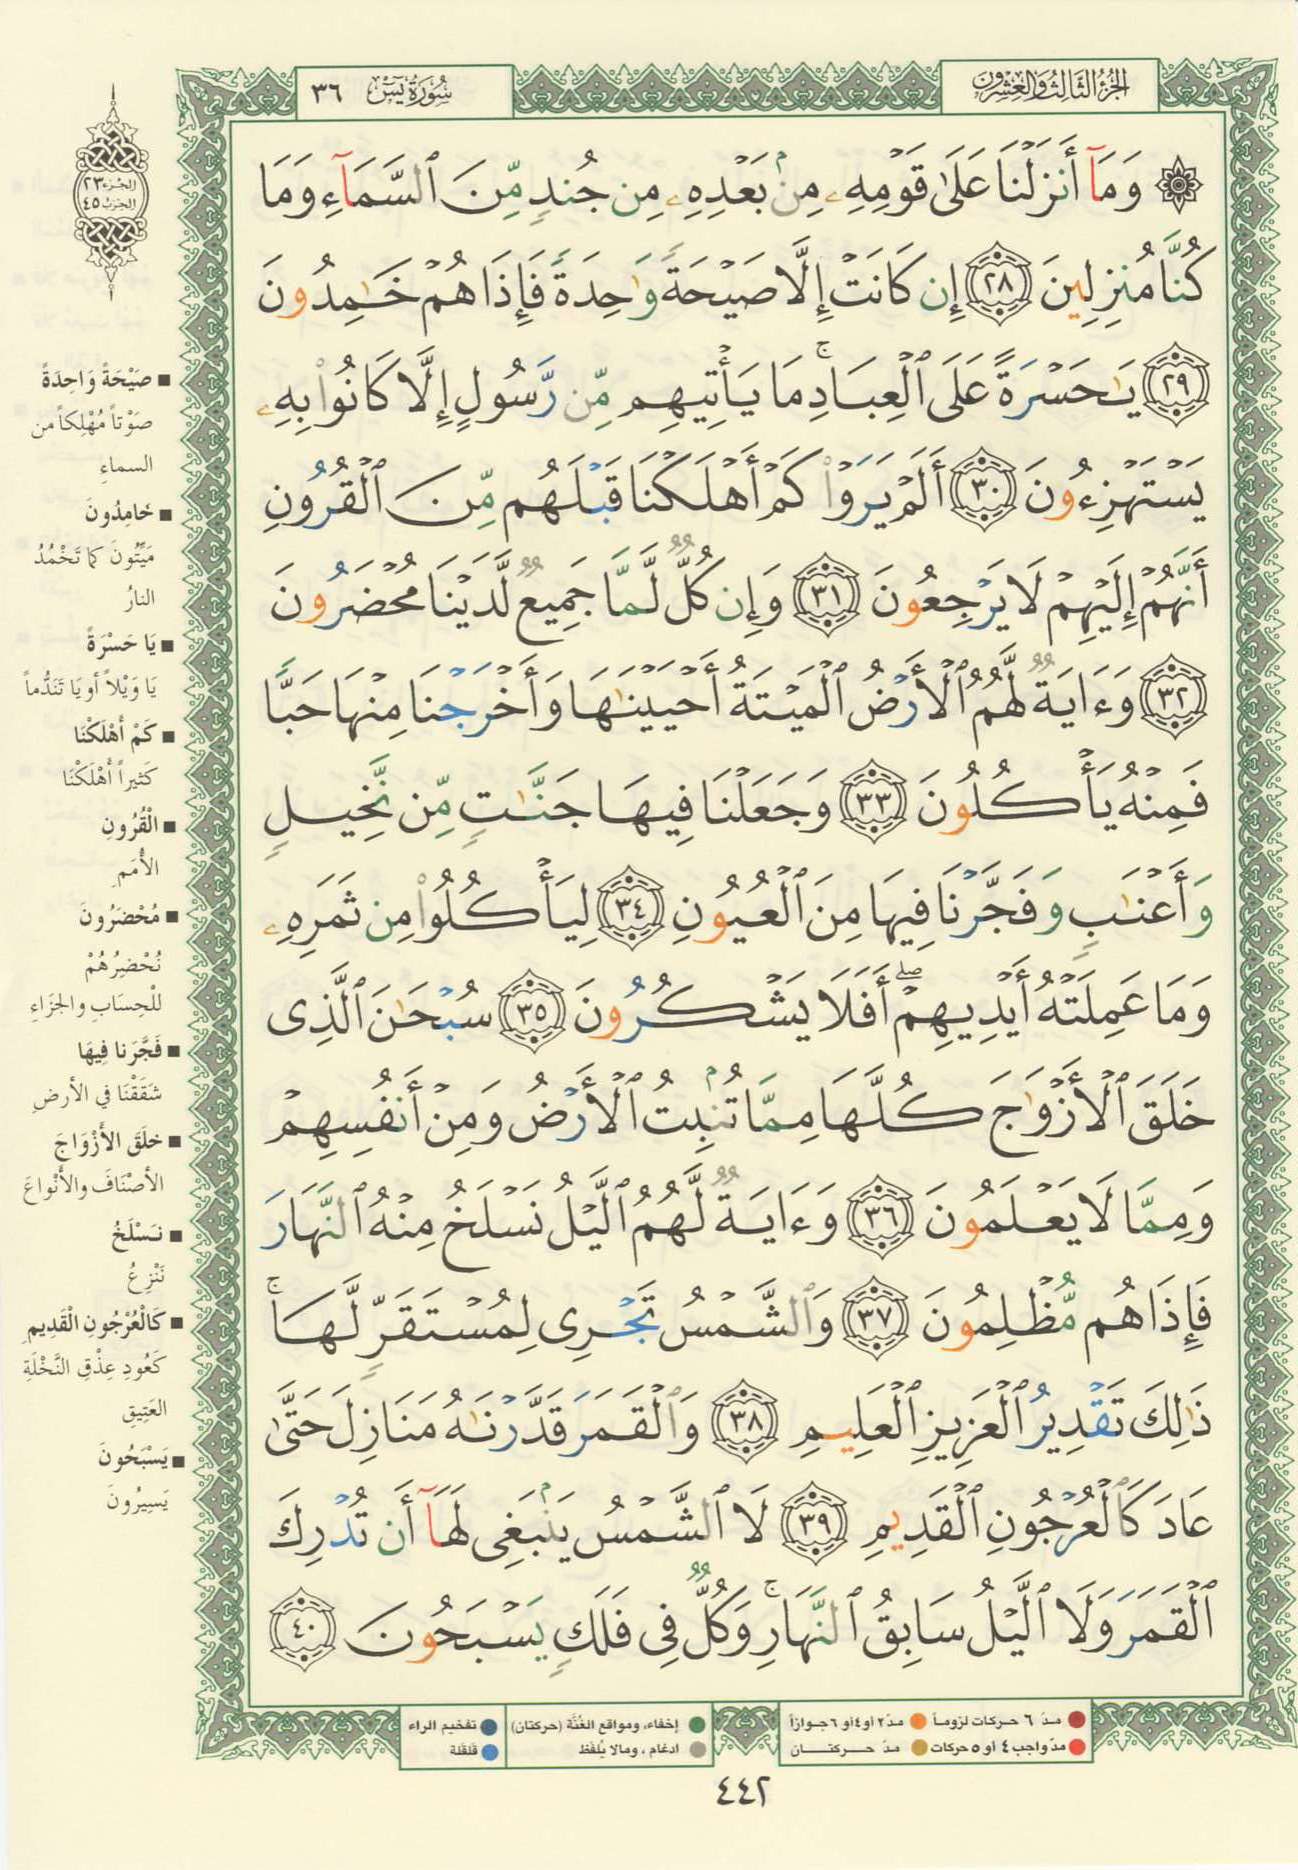 الجزء الثالث والعشرون
سورة يس ٣٦
۞ وَمَآ أَنزَلْنَا عَلَىٰ قَوْمِهِۦ مِنۢ بَعْدِهِۦ مِن جُندٍ مِّنَ ٱلسَّمَآءِ وَمَا
كُنَّا مُنزِلِينَ ٢٨ إِن كَانَتْ إِلَّا صَيْحَةً وَٰحِدَةً فَإِذَا هُمْ خَٰمِدُونَ
٢٩ يَٰحَسْرَةً عَلَى ٱلْعِبَادِ ۚ مَا يَأْتِيهِم مِّن رَّسُولٍ إِلَّا كَانُوا۟ بِهِۦ
يَسْتَهْزِءُونَ ٣٠ أَلَمْ يَرَوْا۟ كَمْ أَهْلَكْنَا قَبْلَهُم مِّنَ ٱلْقُرُونِ
أَنَّهُمْ إِلَيْهِمْ لَا يَرْجِعُونَ ٣١ وَإِن كُلٌّ لَّمَّا جَمِيعٌ لَّدَيْنَا مُحْضَرُونَ
٣٢ وَءَايَةٌ لَّهُمُ ٱلْأَرْضُ ٱلْمَيْتَةُ أَحْيَيْنَٰهَا وَأَخْرَجْنَا مِنْهَا حَبًّا
فَمِنْهُ يَأْكُلُونَ ٣٣ وَجَعَلْنَا فِيهَا جَنَّٰتٍ مِّن نَّخِيلٍ
وَأَعْنَٰبٍ وَفَجَّرْنَا فِيهَا مِنَ ٱلْعُيُونِ ٣٤ لِيَأْكُلُوا۟ مِن ثَمَرِهِۦ
وَمَا عَمِلَتْهُ أَيْدِيهِمْ ۖ أَفَلَا يَشْكُرُونَ ٣٥ سُبْحَٰنَ ٱلَّذِى
خَلَقَ ٱلْأَزْوَٰجَ كُلَّهَا مِمَّا تُنۢبِتُ ٱلْأَرْضُ وَمِنْ أَنفُسِهِمْ
وَمِمَّا لَا يَعْلَمُونَ ٣٦ وَءَايَةٌ لَّهُمُ ٱلَّيْلُ نَسْلَخُ مِنْهُ ٱلنَّهَارَ
فَإِذَا هُم مُّظْلِمُونَ ٣٧ وَٱلشَّمْسُ تَجْرِى لِمُسْتَقَرٍّ لَّهَا ۚ
ذَٰلِكَ تَقْدِيرُ ٱلْعَزِيزِ ٱلْعَلِيمِ ٣٨ وَٱلْقَمَرَ قَدَّرْنَٰهُ مَنَازِلَ حَتَّىٰ
عَادَ كَٱلْعُرْجُونِ ٱلْقَدِيمِ ٣٩ لَا ٱلشَّمْسُ يَنۢبَغِى لَهَآ أَن تُدْرِكَ
ٱلْقَمَرَ وَلَا ٱلَّيْلُ سَابِقُ ٱلنَّهَارِ ۚ وَكُلٌّ فِى فَلَكٍ يَسْبَحُونَ ٤٠
الجزء ٢٣
الحزب ٤٥
■ صَيْحَةً وَاحِدَةً
صَوْتاً مُهْلِكاً من
السماءِ
■ خَامِدُونَ
مَيِّتُونَ كما تَخْمُدُ
النارُ
■ يَا حَسْرَةً
يَا وَيْلاً أو يَا تَنَدُّماً
■ كَمْ أَهْلَكْنَا
كَثيراً أَهْلَكْنَا
■ الْقُرُونِ
الأُمَمِ
■ مُحْضَرُونَ
نُحْضِرُهُمْ
للْحِسَابِ والجزَاءِ
■ فَجَّرنا فِيهَا
شَقَقْنَا في الأرضِ
■ خلَقَ الأَزْوَاجَ
الأصْنَافَ والأَنْواعَ
■ نَسْلَخُ
نَنْزِعُ
■ كَالْعُرْجُونِ الْقَدِيمِ
كَعُودِ عِذْقِ النَّخْلَةِ
العَتِيقِ
■ يَسْبَحُونَ
يَسِيرُونَ
مدّ ٦ حركات لزوماً مدّ ٢ أو ٤ أو ٦ جوازاً
مدّ واجب ٤ أو ٥ حركات مدّ حركتان
إخفاء، ومواقع الغُنَّة (حركتان) تفخيم الراء
ادغام، ومالا يُلفَظ قلقلة
٤٤٢